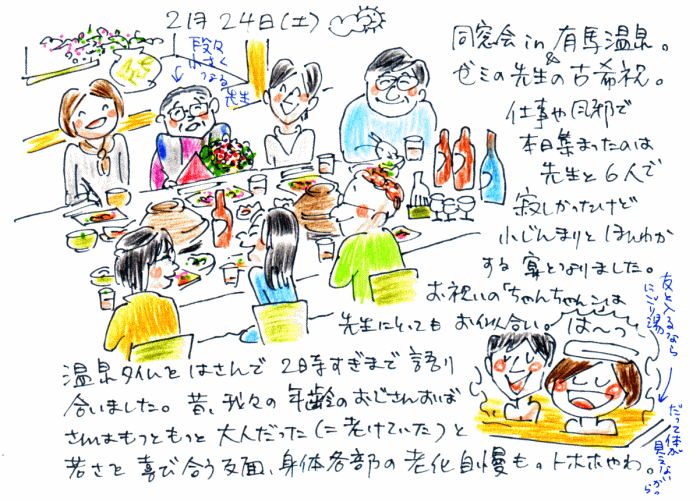 2月24日(土)
段々
小さく
なってる
先生
同窓会 in 有馬温泉。
&
ゼミの先生の古希祝。
仕事や風邪で
本日集まったのは
先生と6人で
寂しかったけど
小じんまりと ほんわか
する宴となりました。
お祝いの「ちゃんちゃんこ」は
先生にとっても お似合い。
は〜っ
友と入るなら
にごり湯
だって体が
見えないから。
温泉タイムと はさんで 2時すぎまで 語り
合いました。昔、我々の 年齢の おじさんおば
さんはもっともっと 大人だった(=老けていた)と
若さを 喜び合う反面、身体各部の 老化自慢も。トホホやわ。